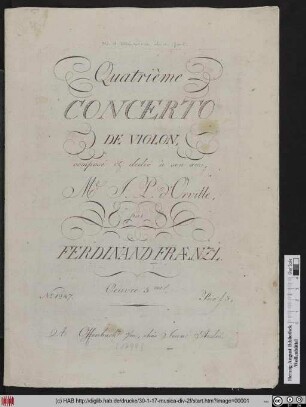 Quatrième
CONCERTO
DE VIOLON,
composé & dedié à son ami,
Mr. S. P. d'Orville,
par
FERDINAND FRÆNZL.
Oeuvre 3me
No. 1247. Prix f 3.
A Offenbach s/m, chés Jean André
Herzog August Bibliothek
Wolfenbüttel
(c) HAB http://diglib.hab.de/drucke/30-1-17-musica-div-2f/start.htm?image=00001